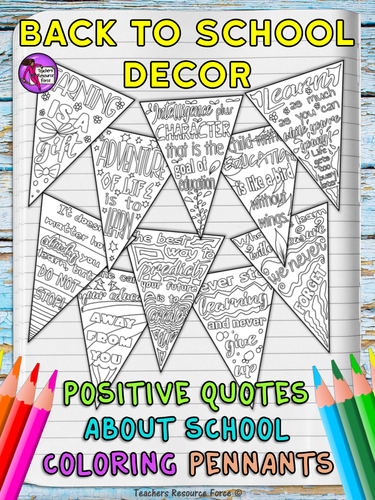 BACK TO SCHOOL
DECOR
Teachers
Resource
Force
LEARNING
IS A
gift
ADVENTURE
OF LIFE
IS TO
LEARN
Intelligence plus
CHARACTER
that is the
goal of
education
child without
EDUCATION
is like a bird
without
wings.
Learn
as much
as you can
while you're
young
Life
gets
It doesn't
matter how
slowly you
learn, but
DO NOT
STOP!
AWAY
FROM
YOU
The best
way to
predict
your future
is to
create
Never stop
learning
and never
give
up
we never
FORGET
POSITIVE QUOTES
ABOUT SCHOOL
COLORING PENNANTS
Teachers Resource Force ©